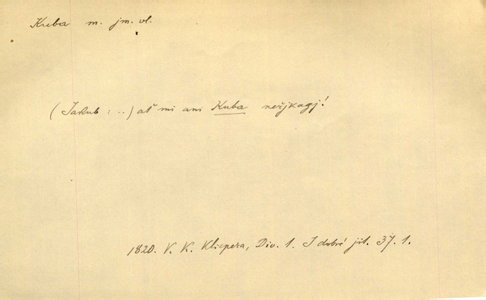 Kuba m. jm. vl.
(Jakub: ..) ať mi ani Kuba neřjkagj!
1820. V. K. Klicpera, Div. 1. I dobré jit. 37. 1.